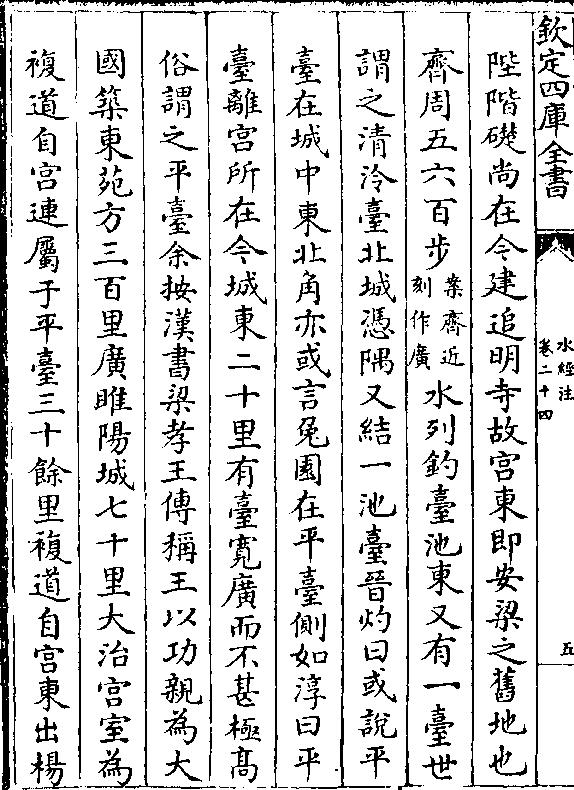 欽定四庫全書
水經注
卷二十四
五
陛階礎尚在今建追明寺故宫東即安梁之舊地也
齊周五六百步案齊近刻作廣水列釣臺池東又有一臺世
謂之清泠臺北城憑隅又結一池臺晉灼曰或說平
臺在城中東北角亦或言兔園在平臺側如淳曰平
臺離宫所在今城東二十里有臺寛廣而不甚極髙
俗謂之平臺余按漢書梁孝王傳稱王以功親為大
國築東苑方三百里廣睢陽城七十里大治宫室為
複道自宫連屬于平臺三十餘里複道自宫東出楊